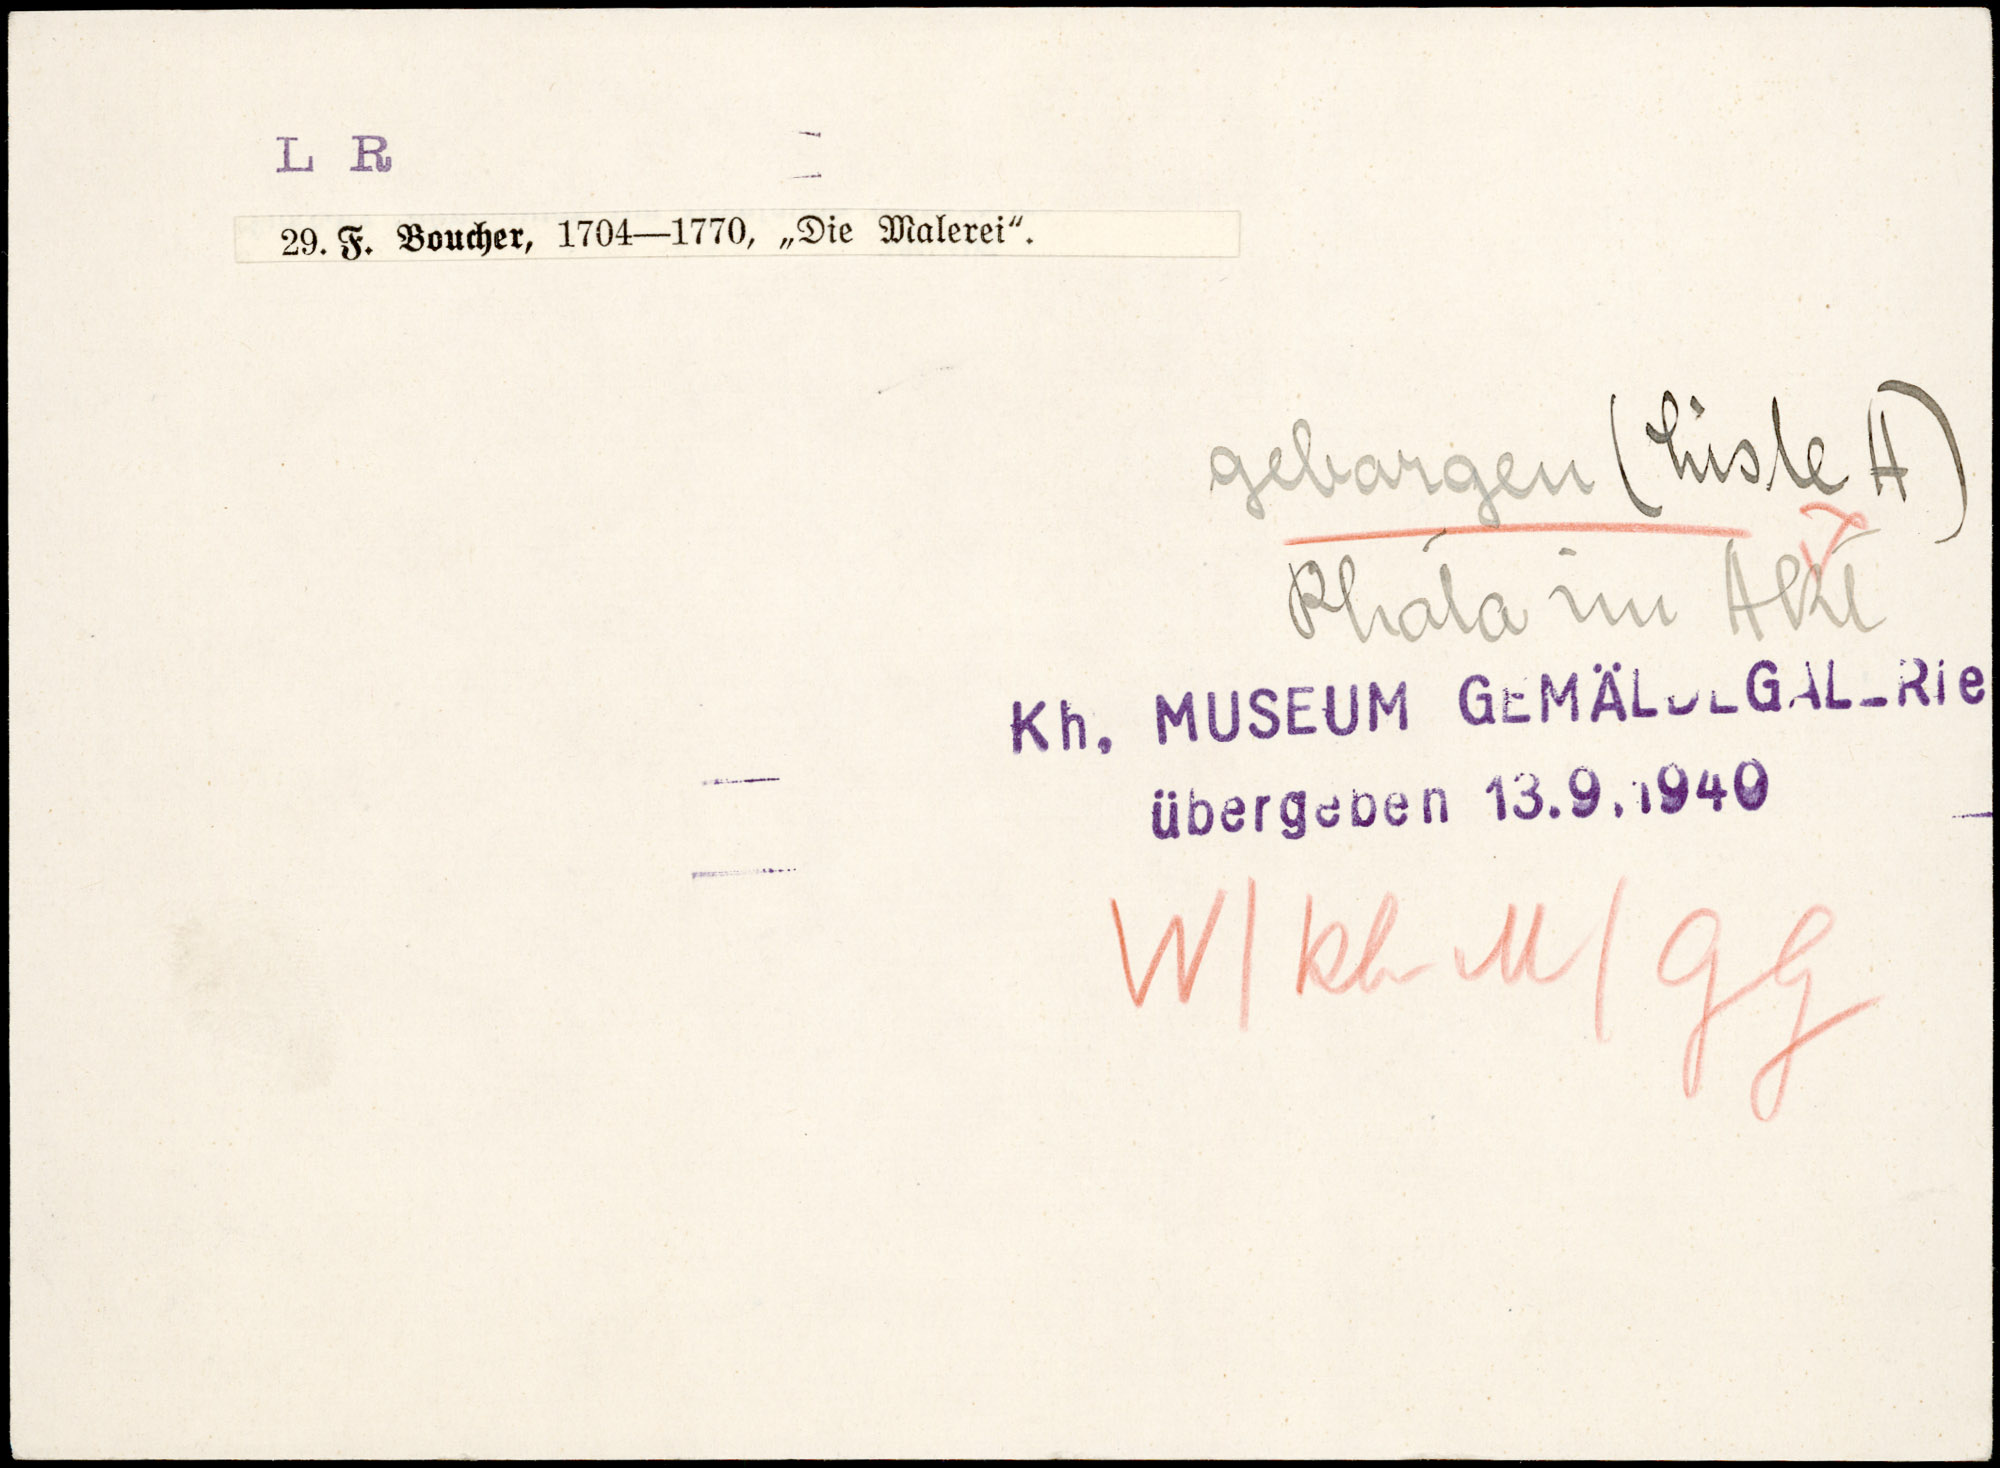 L R
29. F. Boucher, 1704—1770, „Die Malerei“.
geborgen (Liste A)
Photo im Akt
Kh. MUSEUM GEMÄLDEGALERIE
übergeben 13.9.1940
W/Kh M/GG